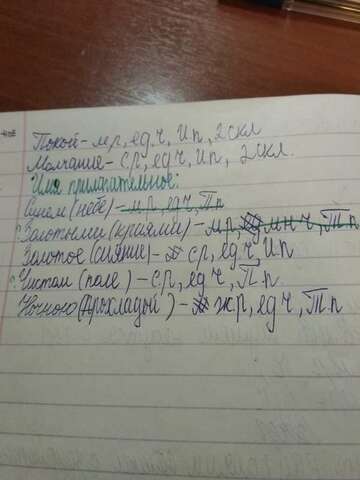 Покой - м р, ед ч, И п, 2 скл
Молчание - с р, ед ч, И п, 2 скл.
Имя прилагательное:
Синем (небе) - м р, ед ч, П п
Золотыми (краями) - м р, мн ч, Т п
Золотое (сияние) - с р, ед ч, И п
Чистом (поле) - с р, ед ч, П п.
Ночного (прохладой) - ж р, ед ч, Т п